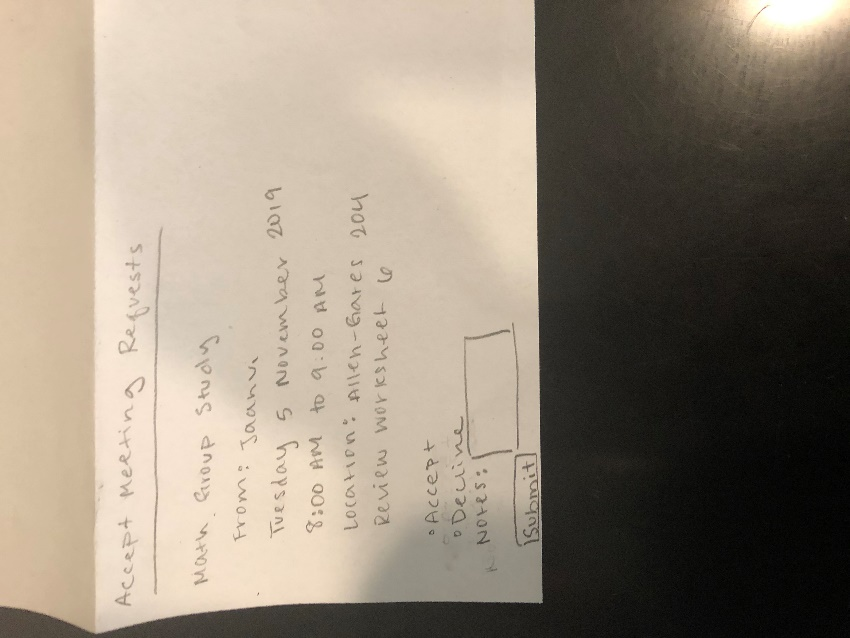 Accept Meeting Requests
Math Group Study
From: Jaanvi
Tuesday 5 November 2019
8:00 AM to 9:00 AM
Location: Allen-Gates 204
Review Worksheet 6
Accept
Decline
Notes:
Submit